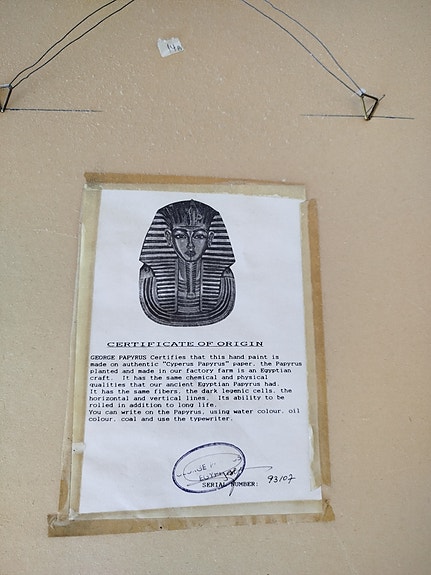 14A
CERTIFICATE OF ORIGIN
GEORGE PAPYRUS Certifies that this hand paint is
made on authentic "Cyperus Papyrus" paper, the Papyrus
planted and made in our factory farm is an Egyptian
craft. It has the same chemical and physical
qualities that our ancient Egyptian Papyrus had.
It has the same fibers, the dark legenic cells, the
horizontal and vertical lines. Its ability to be
rolled in addition to long life.
You can write on the Papyrus, using water colour, oil
colour, coal and use the typewriter.
SERIAL NUMBER: 93/07